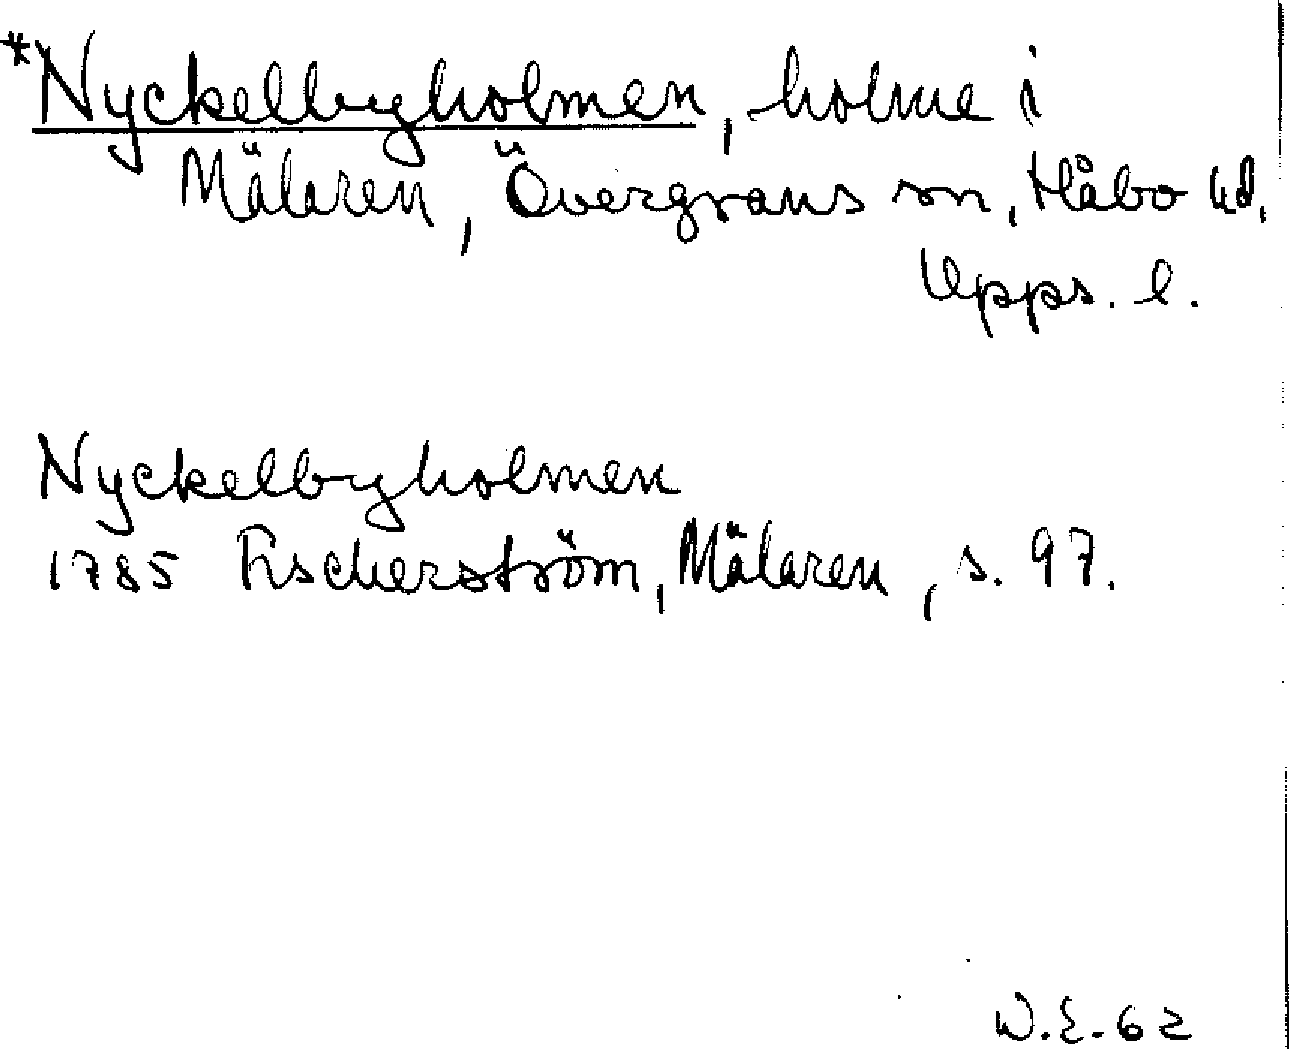 *Nyckelbyholmen, holme i
Mälaren, Övergrans sn, Håbo hd,
Upps. l.
Nyckelbyholmen
1785 Fischerström, Mälaren, s. 97.
W.E.-62